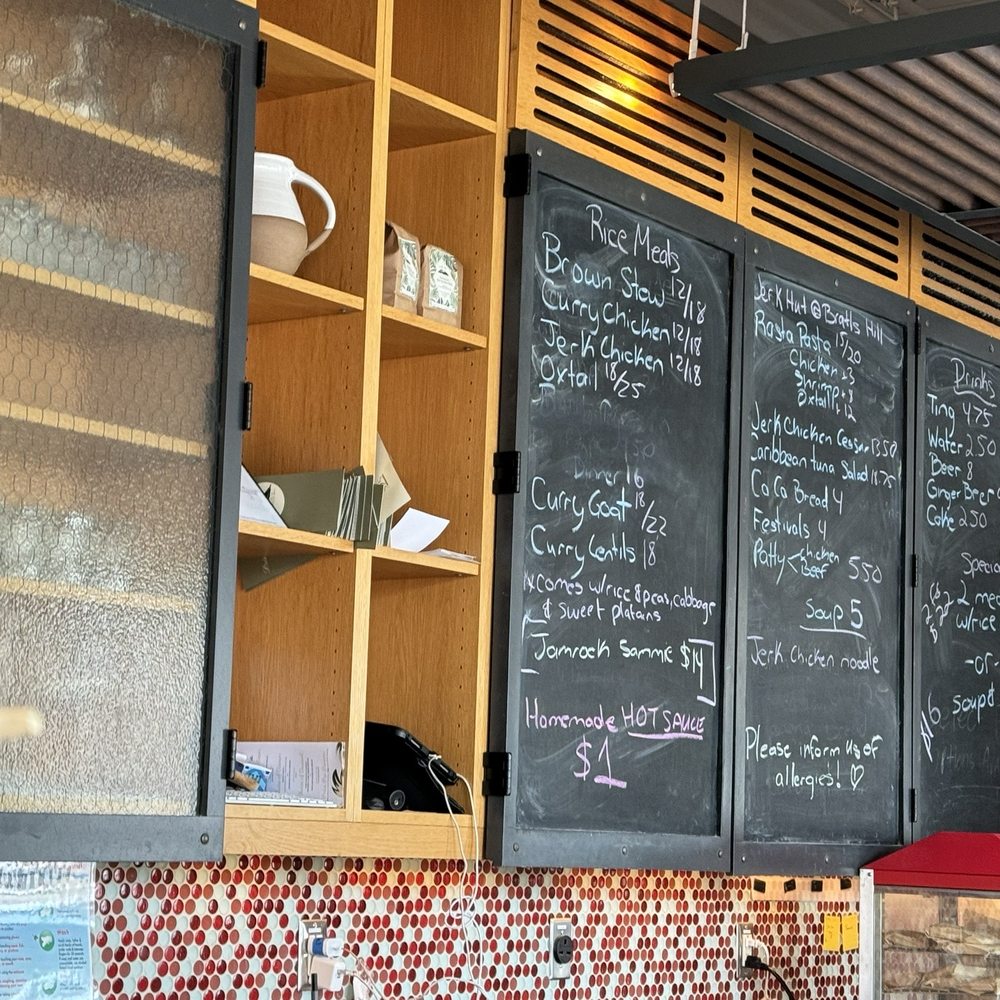 Rice Meals
Brown Stew 12/18
Curry Chicken 12/18
Jerk Chicken 12/18
Oxtail 18/25
Dinner 16
Curry Goat 18/22
Curry Lentils 18
*comes w/rice & peas, cabbage
& sweet platains
Jamrock Sammie $14
Homemade HOT SAUCE
$1
Jerk Hut @ Bratls Hill
Rasta Pasta 15/20
Chicken +3
Shrimp +3
Oxtail 12
Jerk Chicken Ceasar 13.50
Caribbean tuna Salad 18.75
Co Co Bread 4
Festivals 4
Patty < chicken
Beef 550
Soup 5
Jerk Chicken noodle
Please inform us of
allergies! ♡
Drinks
Ting 475
Water 250
Beer 8
Ginger Beer
Coke 250
Specia
2 me
w/rice
-or-
soup &